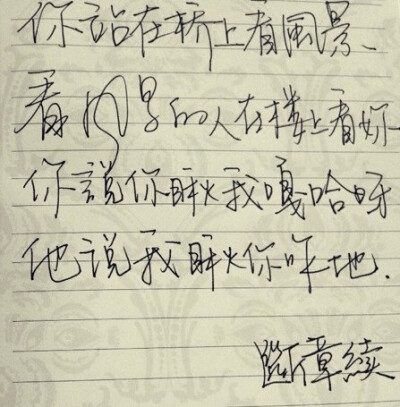 你站在桥上看風景、
看风景的人在楼上看妳
你說你瞅我嘎哈呀
他说我瞅你咋地.
斷章續